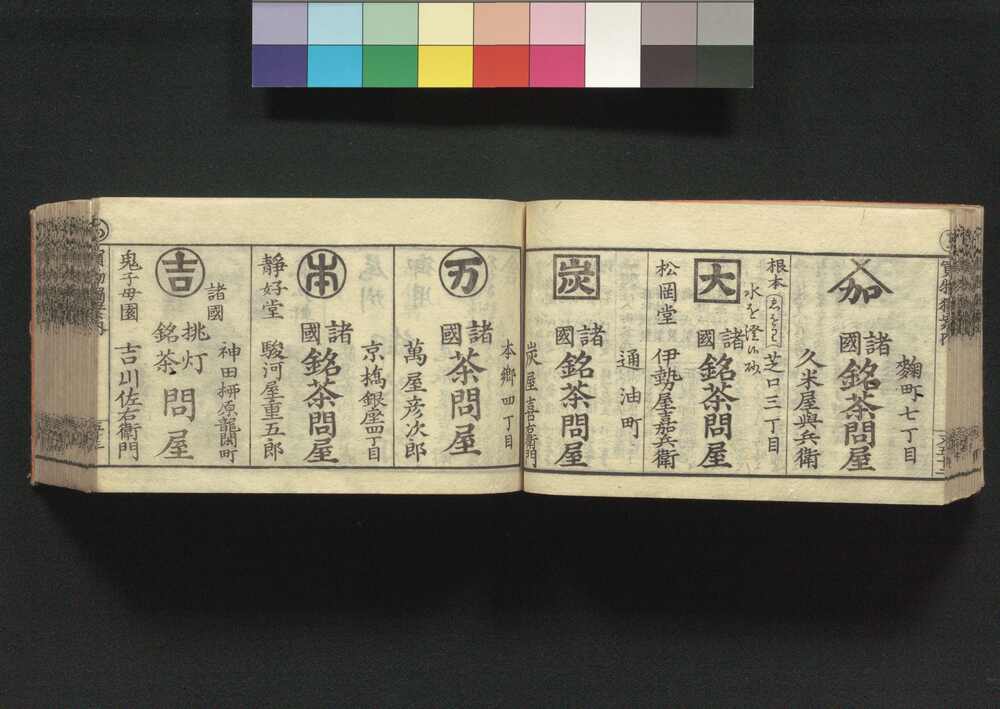 麴町七丁目
加
諸國
銘茶問屋
久米屋與兵衛
根本
芝口三丁目
大
諸國
銘茶問屋
松岡堂
伊勢屋嘉兵衛
通油町
炭
諸國
銘茶問屋
炭屋喜右衛門
本郷四丁目
万
諸國
茶問屋
萬屋彦次郎
京橋銀座四丁目
本
諸國
銘茶問屋
靜好堂
駿河屋重五郎
神田柳原龍閑町
諸國
吉
挑灯
銘茶
問屋
鬼子母園
吉川佐右衛門